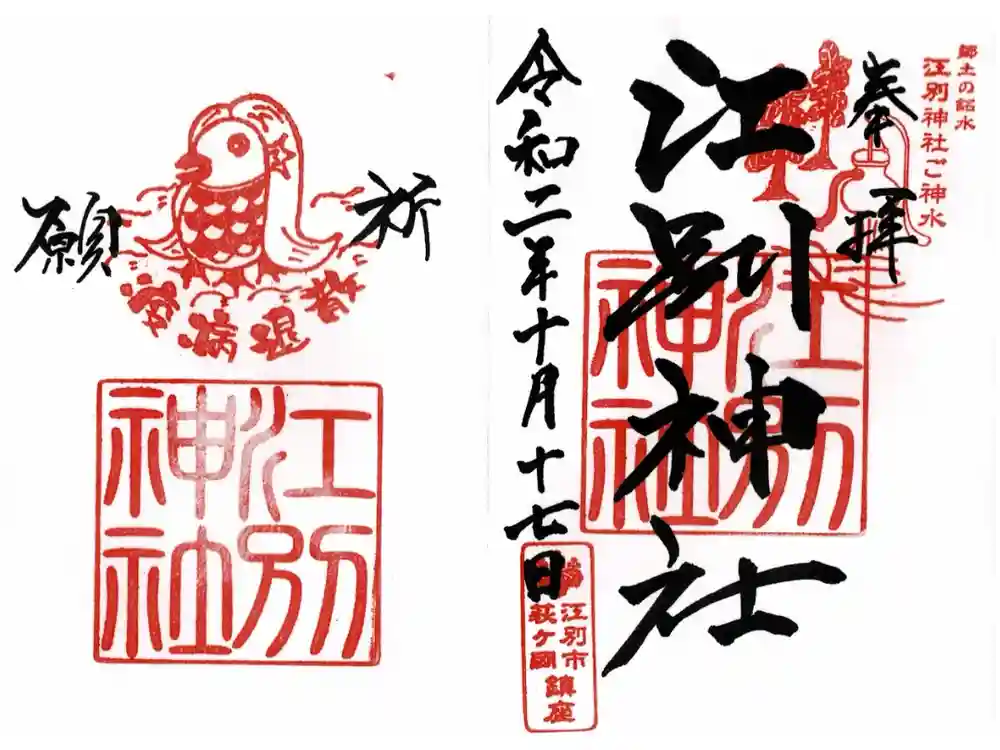 郷土の銘水
江別神社ご神水
奉拝
江別神社
江別
神社
令和二年十月十七日
江別市
萩ヶ岡
鎮座
祈願
疫病退散
江別
神社